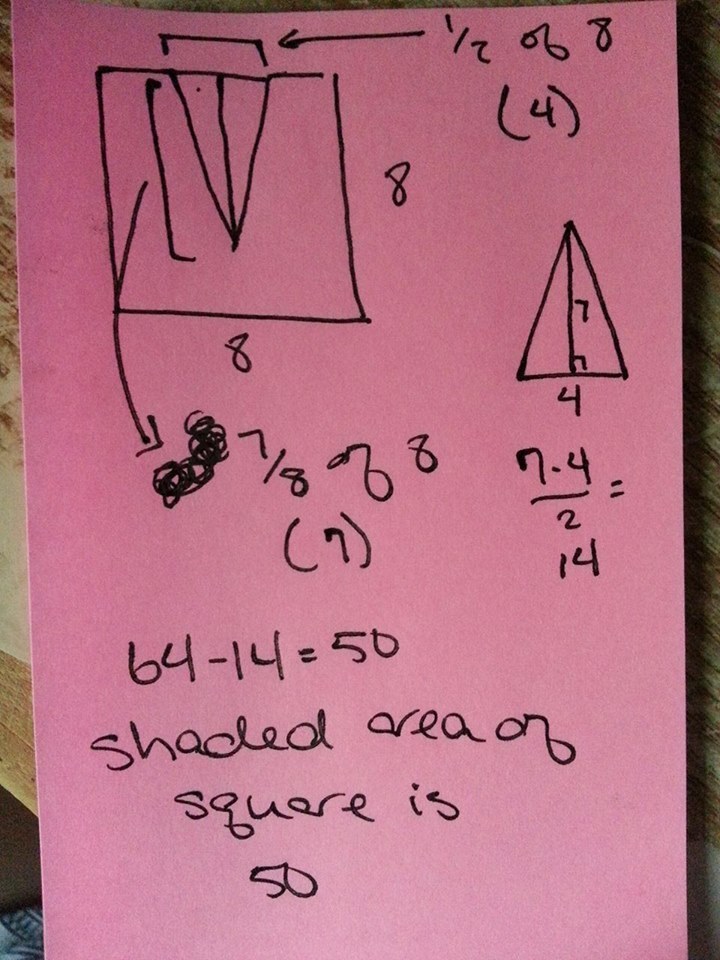 1/2 of 8
(4)
8
8
7
4
7/8 of 8
(7)
7·4
2
=
14
64-14=50
shaded area of
square is
50